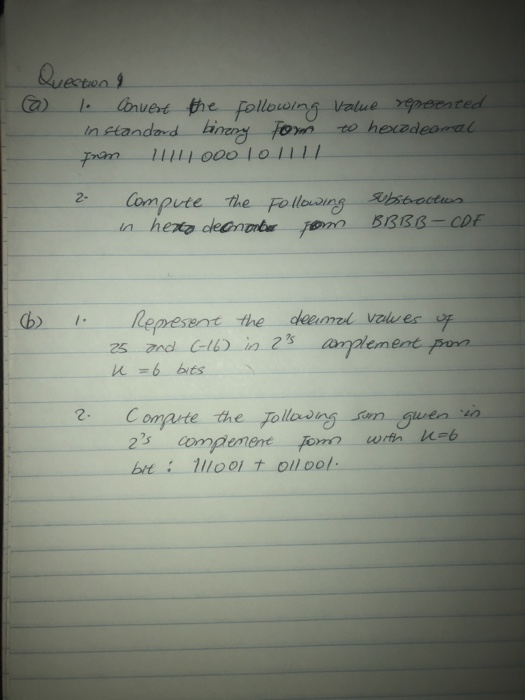 Question 1
(a) 1. Convert the following value represented
in standard binary form to hexadeamal
from 11111000101111
2- Compute the Following Substraction
in form BBBB-CDF
(b) 1. Represent the decimal values of
25 and (-16) in 2's complement from
K=6 bits
2. Compute the following sum given in
2's complement Form with K=6
bit: 111001 + 011001.